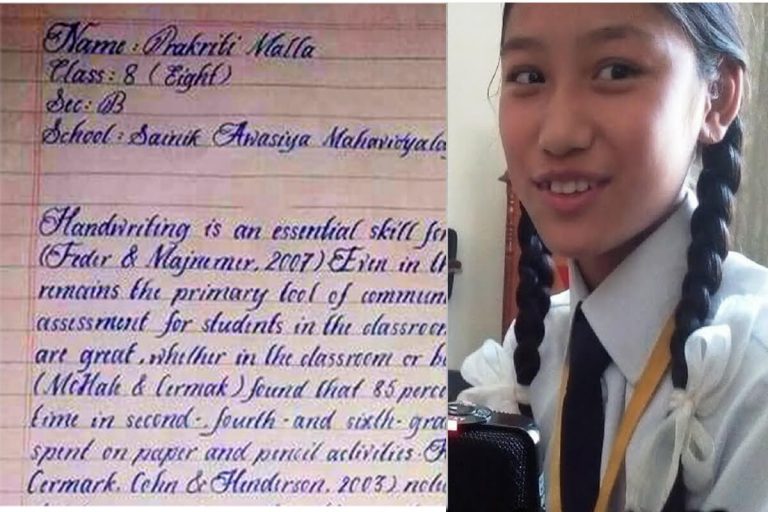 Name : Prakriti Malla
Class : 8 ( Eight )
Sec : B
School : Sainik Awasiya Mahavidyalay
Handwriting is an essential skill for
(Feder & Majnemer, 2007) Even in th
remains the primary tool of communi
assessment for students in the classroom
are great, whether in the classroom or be
(McHale & Cermak) found that 85 perce
time in second-, fourth-and sixth-grad
spent on paper and pencil activities.
Cermark, Cohn & Henderson, 2003)